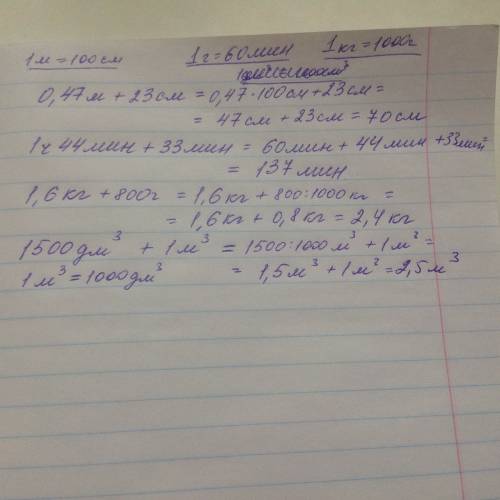 1м = 100см 1г = 60мин 1кг = 1000г
0,47м + 23см = 0,47·100см + 23см =
= 47см + 23см = 70см
1ч 44мин + 33мин = 60мин + 44мин + 33мин =
= 137мин
1,6кг + 800г = 1,6кг + 800:1000кг =
= 1,6кг + 0,8кг = 2,4кг
1500дм³ + 1м³ = 1500:1000м³ + 1м³ =
1м³ = 1000дм³ = 1,5м³ + 1м³ = 2,5м³